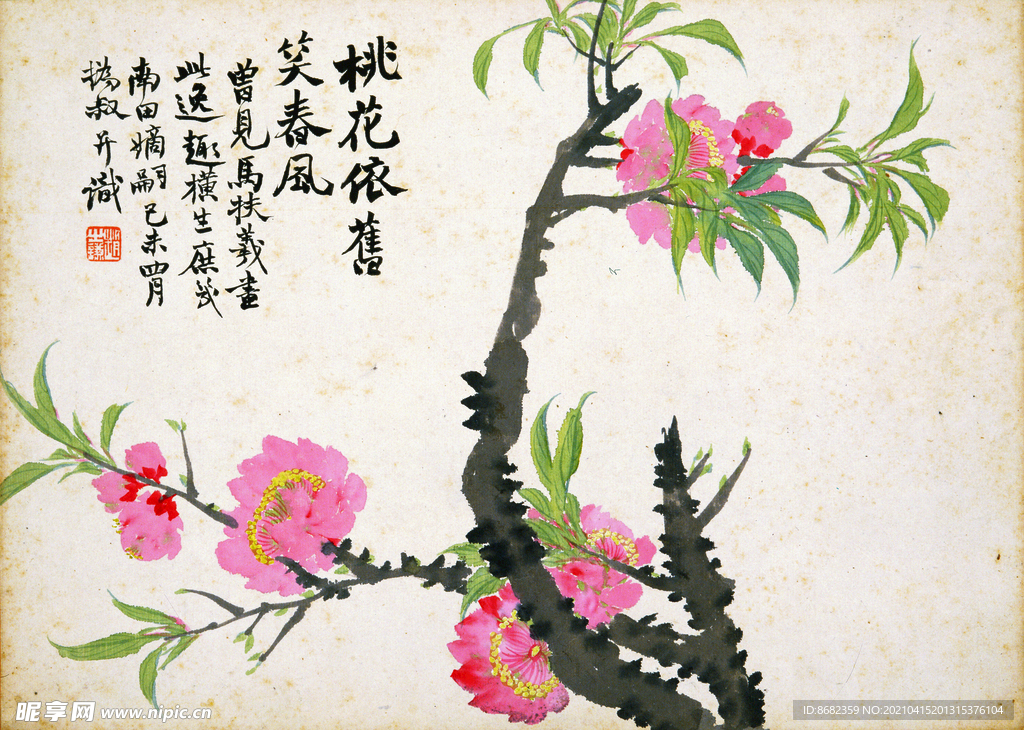 桃花依舊
笑春風
曾見馬扶羲畫
此逸趣橫生庶幾
南田嫡嗣己未四月
撝叔并識
昵享网 www.nipic.cn
ID:8682359 NO:20210415201315376104